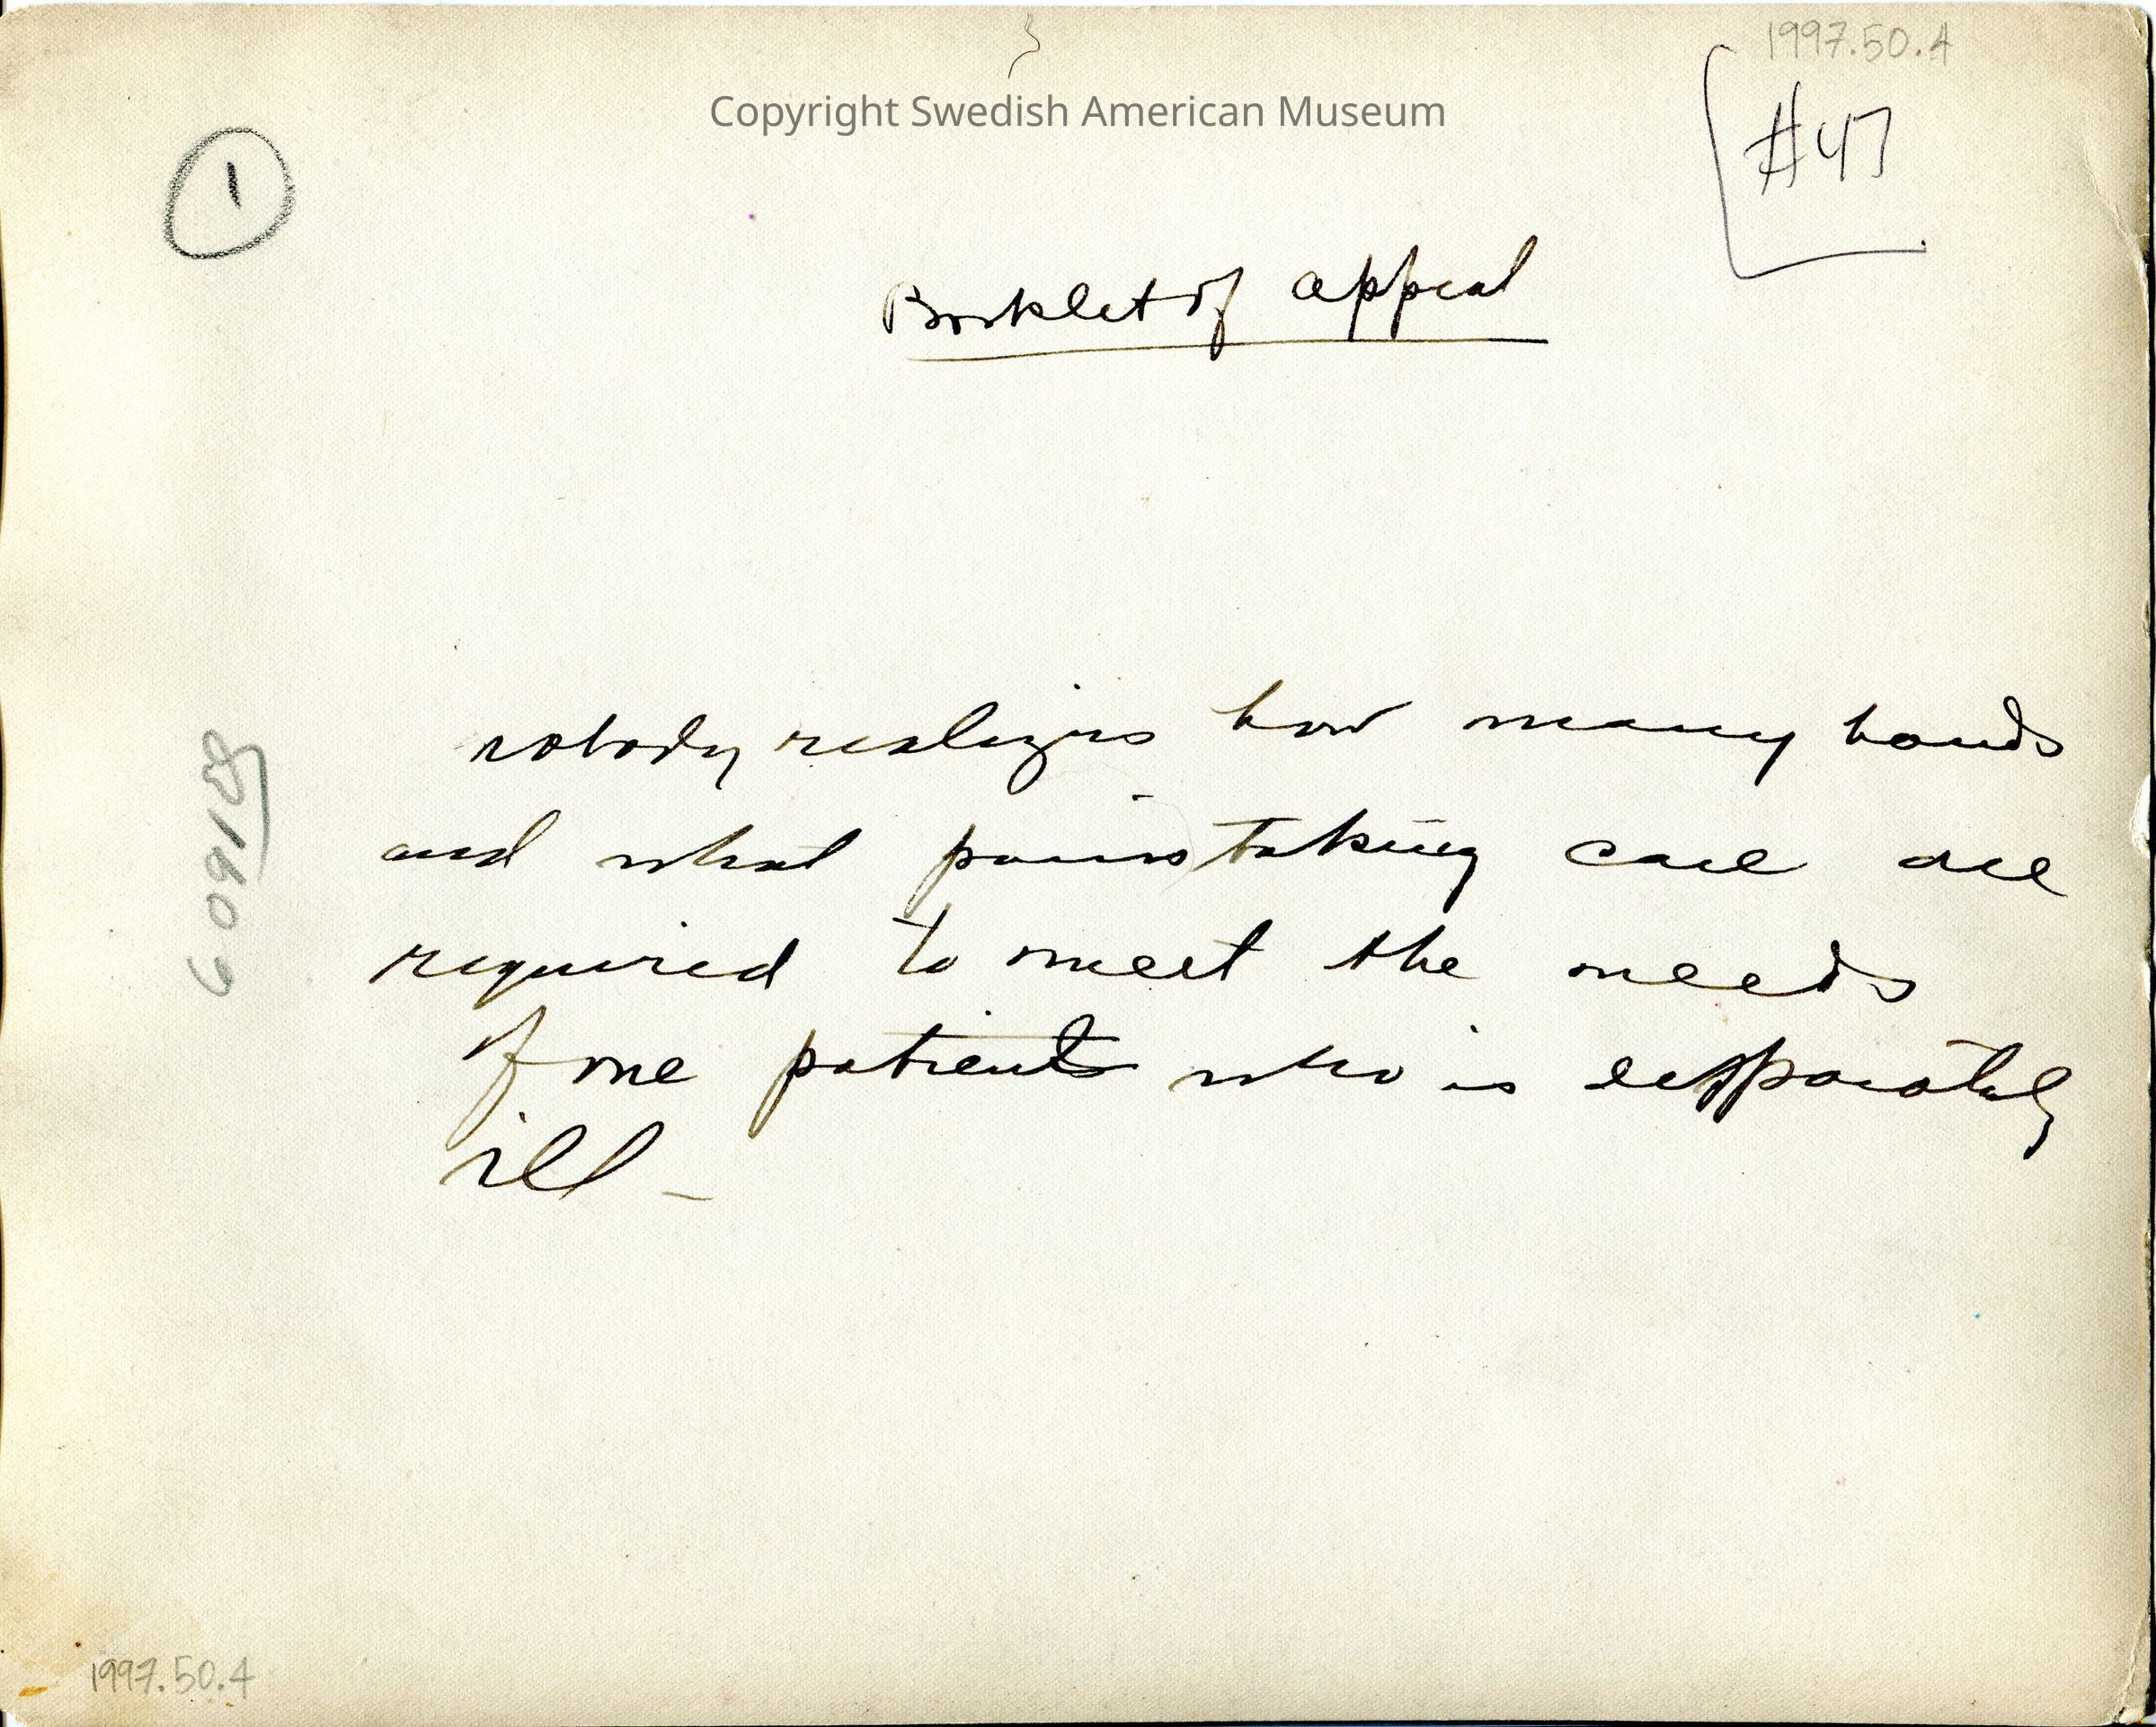 1997.50.4
Copyright Swedish American Museum
#47
1
Booklet of appeal
nobody realizes how many hands
and what painstaking care are
required to meet the needs
of one patient who is desperately
ill –
1997.50.4